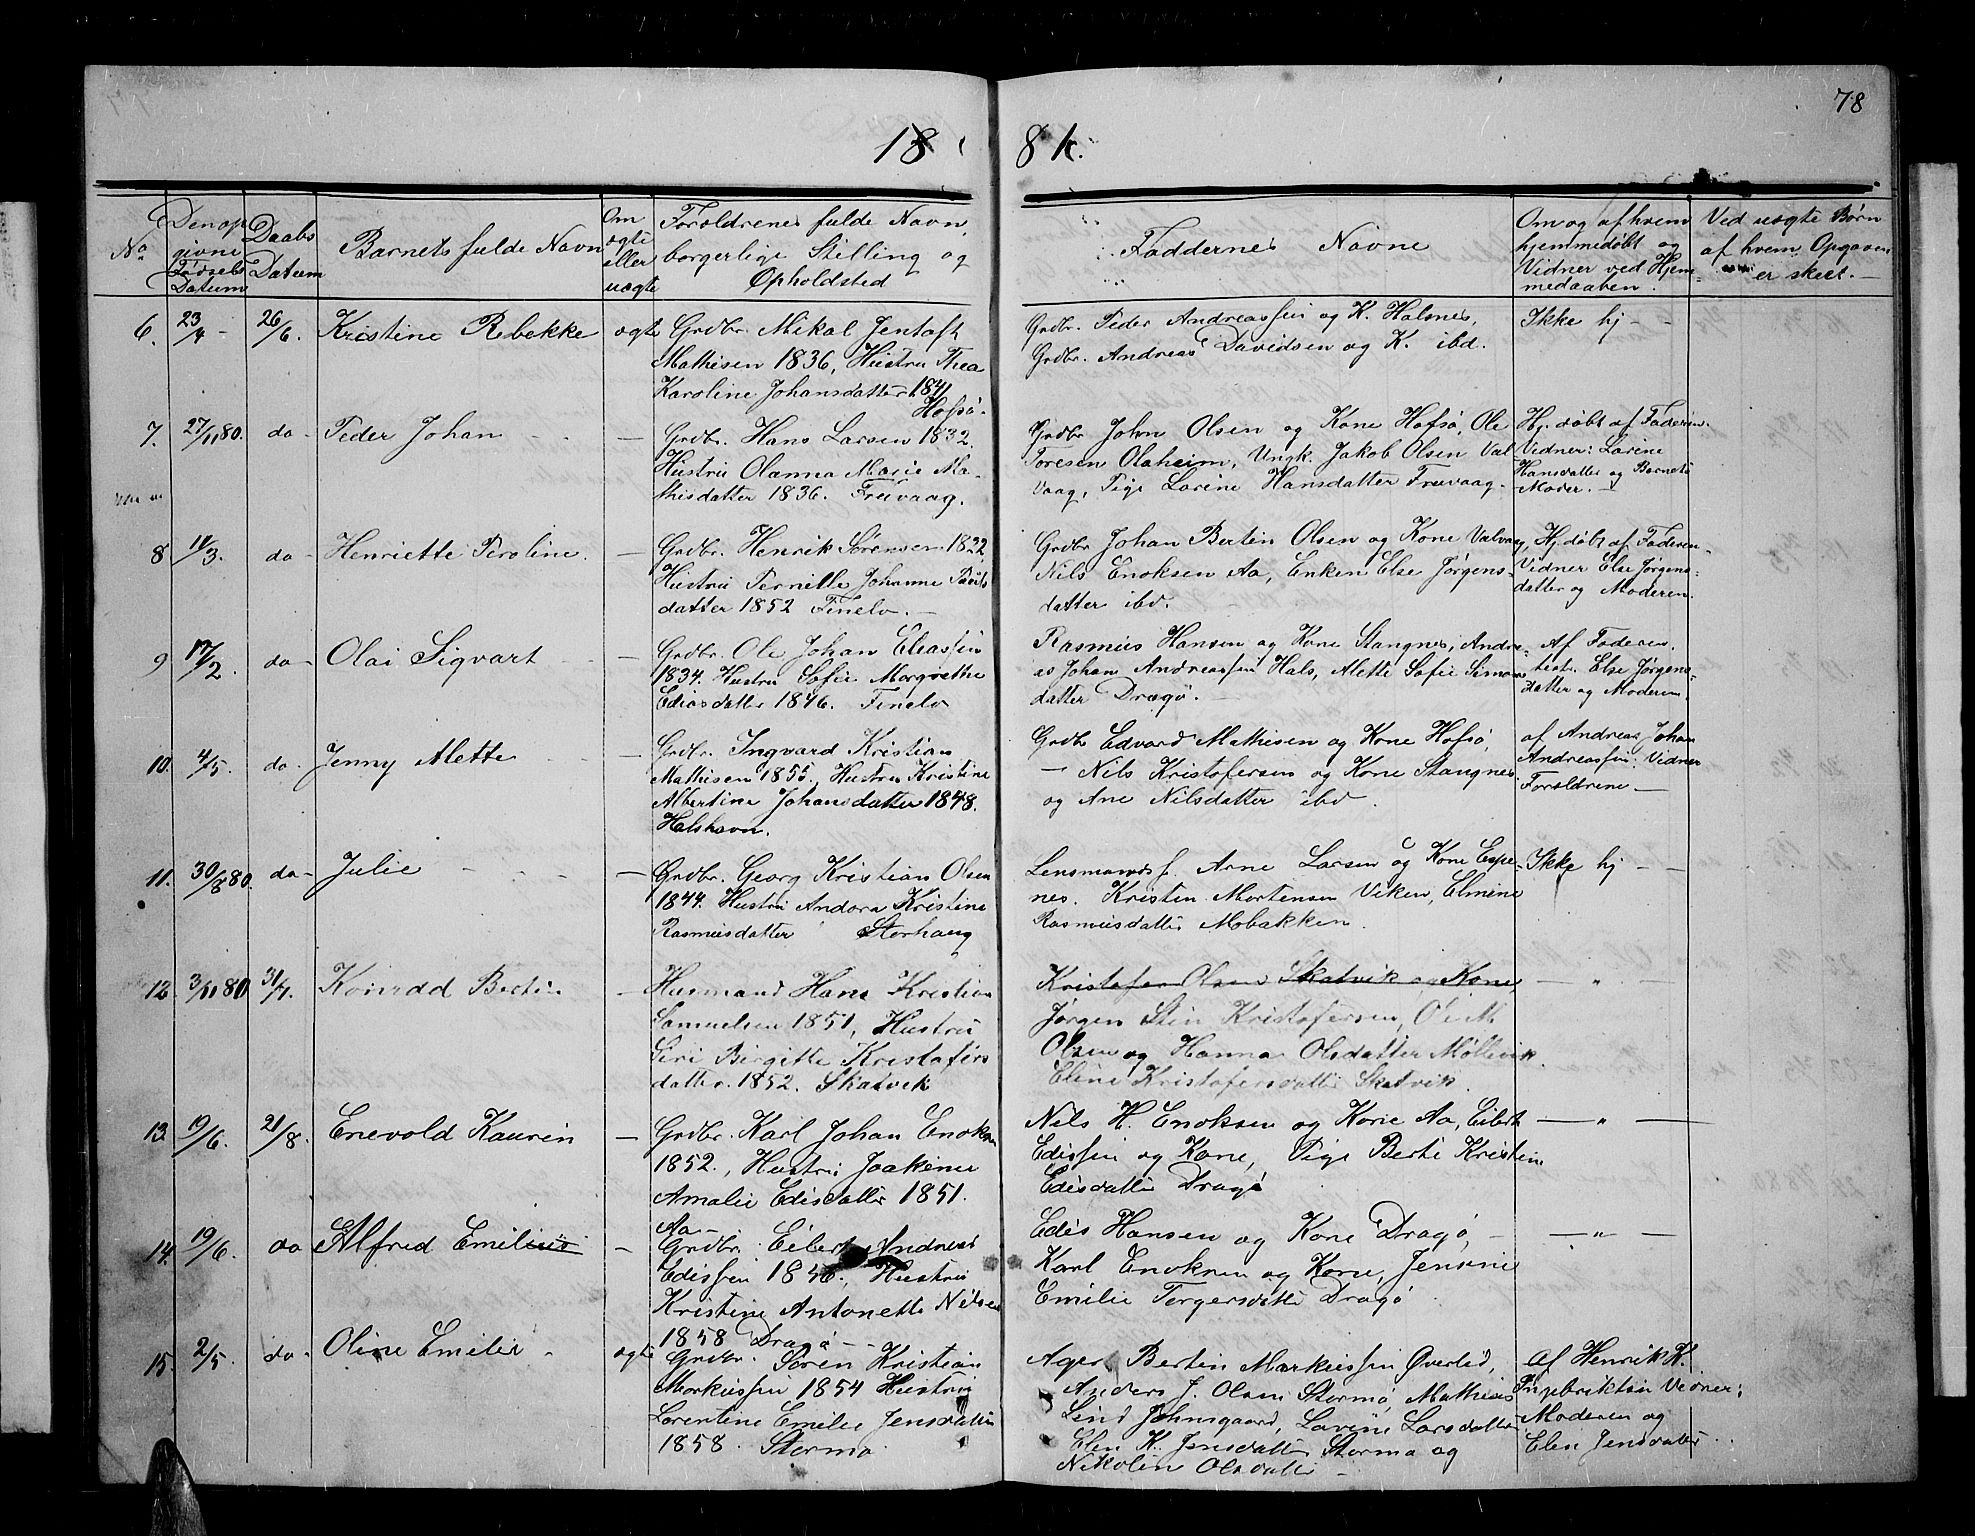 78
18 81.
No
Den op
givne
Fødsels
Datum
Daabs
Datum
Barnets fulde Navn
Om
ægte
eller
uægte
Forældrenes fulde Navn,
borgerlige Stilling og
Opholdsted
Faddernes Navne
Om og af hvem
hjemmedøbt og
Vidner ved Hjem-
medaaben.
Ved uægte Børn
af hvem Opgaven
er skeet.
6. 23/4 - 26/6. Kristine Rebekke ægte
Grdbr. Mikal Jentoft
Mathisen 1836, Hustru Thea
Karoline Johansdatter 1841
Hofsø.
Grdbr. Peder Andreassen og K. Halsnes,
Grdbr. Andreas Davidsen og K. ibd.
Ikke hj - -
7. 27/11 80. do - Peder Johan - - —
Grdbr. Hans Larsen 1832.
Hustru Olanna Marie Ma-
thisdatter 1836. Truvaag.
Grdbr John Olsen og Kone Hofsø, Ole
Toresen Olaheim, Ungk. Jakob Olsen Val-
vaag, Pige Lorine Hansdatter Truvaag.
Hj. døbt af Faderen.
Vidner: Lorine
Hansdatter og Barnets
Moder. —
8 11/3. do - Henriette Peroline. —
Grdbr. Henrik Sørensen 1822,
Hustru Pernille Johanne Pauls
datter 1852 Finelv. —
Grdbr Johan Bertin Olsen og Kone Valvaag,
Nils Enoksen Aa, Enken Else Jørgens-
datter ibd.
Hj. døbt af Faderen
Vidner Else Jørgens-
datter og Moderen.
9 17/2. do - Olai Sigvart - —
Grdbr. Ole Johan Eliassen
1834. Hustru Sofie Margrethe
Ediasdatter 1846. Finelv
Rasmus Hansen og Kone Stangnes, Andre-
as Johan Andreassen Hals, Alette Sofie Simons
datter Dragø. —
Af Faderen.
test. Else Jørgens-
datter og Moderen
10. 4/5. do - Jenny Alette - —
Grdbr. Ingvard Kristian
Mathisen 1855, Hustru Kristine
Albertine Johansdatter 1848.
Halshavn.
Grdbr Edvard Mathisen og Kone Hofsø,
— Nils Kristofersen og Kone Stangnes
og Ane Nilsdatter ibd.
af Andreas Johan
Andreassen. Vidner
Forældrene —
11. 30/8 80. do - Julie - - - —
Grdbr. Georg Kristian Olsen
1844. Hustru Andora Kristine
Rasmusdatter Storhaug
Lensmandsf. Arne Larsen og Kone Espe-
nes. Kristen Mortensen Viken, Elmine
Rasmusdatter Mobakken.
Ikke hj - -
12 3/11 80 31/7. Konrad Bertin —
Husmand Hans Kristian
Samuelsen 1851, Hustru
Siri Birgitte Kristofers
datter. 1852. Skatvik
Kristofer Olsen Skatvik og Kone,
Jørgen Stin Kristofersen, Ole M
Olsen og Hanna Olsdatter Møllevik
Eline Kristofersdatter Skatvik.
— „ —
13. 19/6. 21/8. Enevold Kaurin —
Grdbr. Karl Johan Enoksen
1852., Hustru Joakime
Amalie Edisdatter 1851.
Aa —
Nils H. Enoksen og Kone Aa, Eilert
Edissen og Kone, Pige Berte Kristin
Edisdatter Dragø
— „ —
14. 19/6. do Alfred Emilius —
Grdbr. Eilert Andreas
Edissen 1856., Hustru
Kristine Antonette Nilsen
1858 Dragø —
Edis Hansen og Kone Dragø, -
Karl Enoksen og Kone, Jensine
Emilie Torgersdatter Dragø
— „ —
15. 2/5. do - Oline Emilie - ægte
Grdbr. Søren Kristian
Markussen 1854 Hustru
Lorentine Emilie Jensdatter
1858. Stormo
Ager. Bertin Markussen Øverlid,
Anders J. Olsen Stormo, Mathias
Lind Johnsgaard, Lovine Larsdatter
Elen K. Jensdatter Stormo og
Nikolin Olsdatter —
af Henrik K.
Ingebriktsen Vidner:
Moderen og
Elen Jensdatter